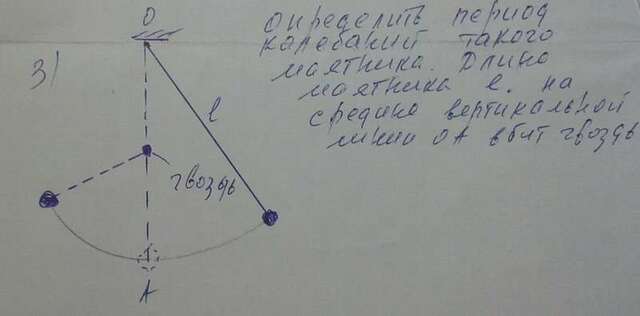 О
3)
определить период
колебаний такого
маятника. Длина
маятника l. на
средине вертикальной
линии ОА вбит гвоздь
l
гвоздь
А